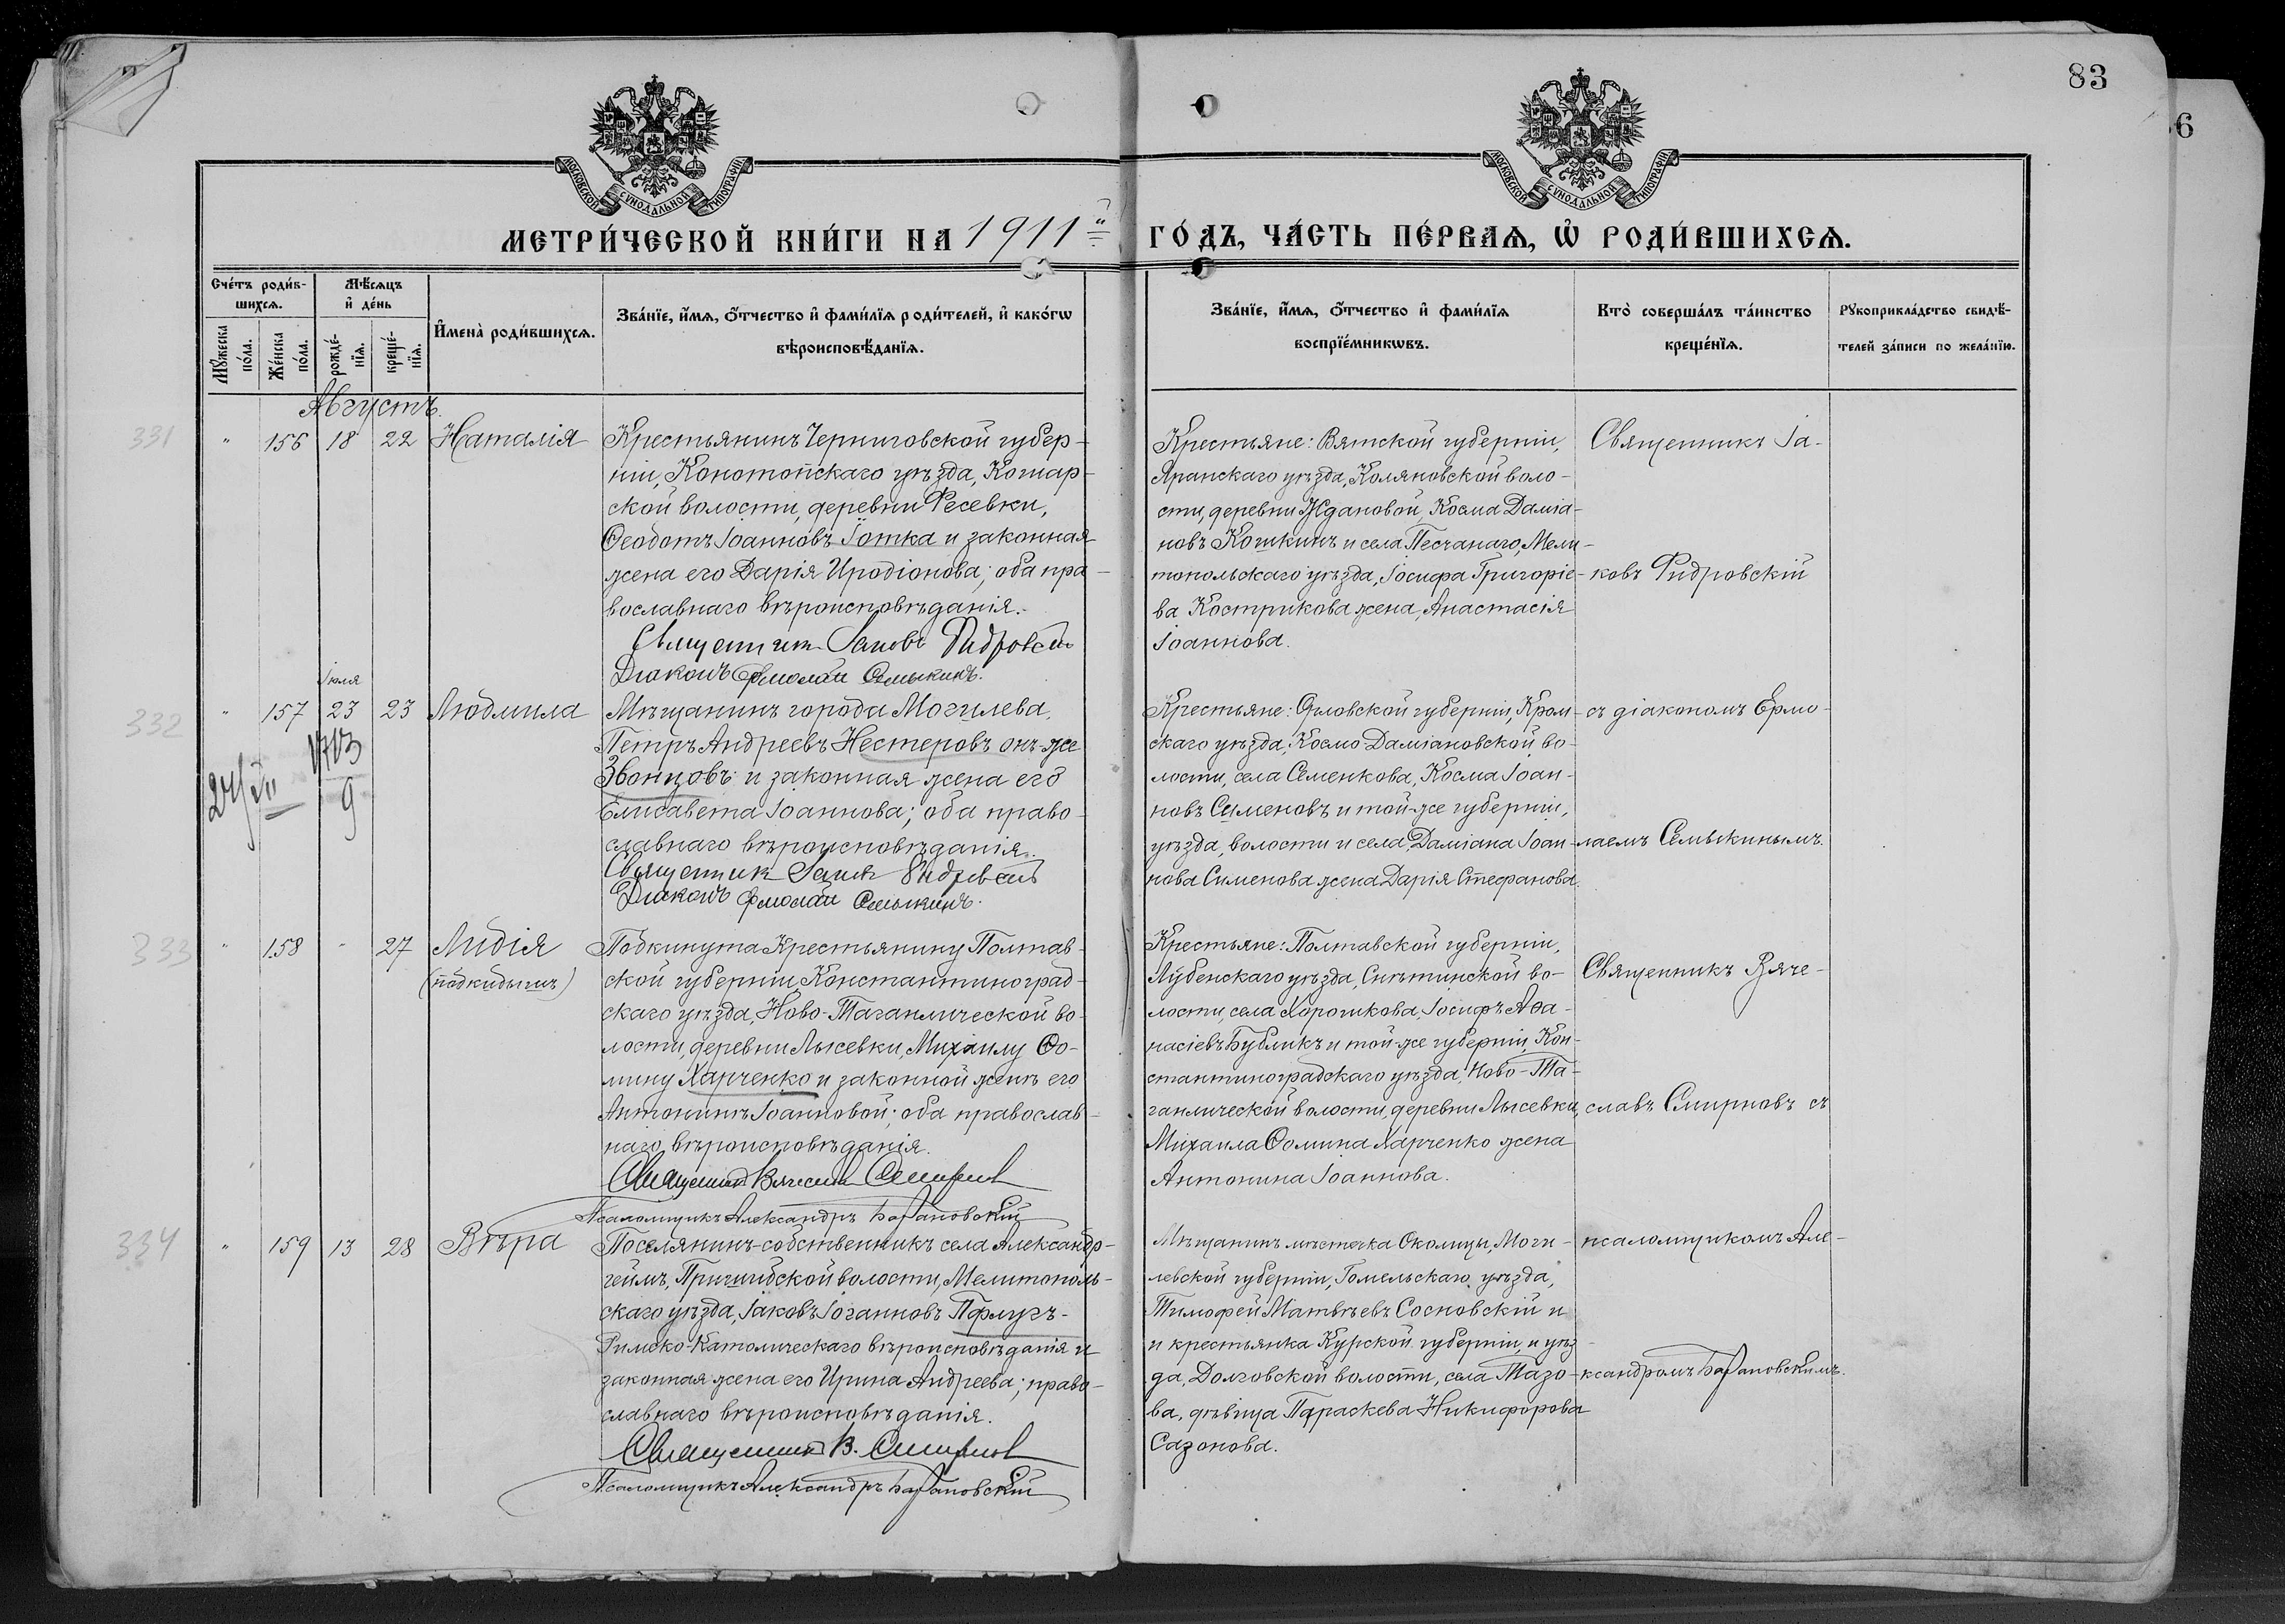 83
6
МОСКОВСКОЙ СУНОДАЛЬНОЙ ТИПОГРАФІИ
МОСКОВСКОЙ СУНОДАЛЬНОЙ ТИПОГРАФІИ
МЕТРИ́ЧЕСКОЙ КНИ́ГИ НА 1911й
ГО́ДЪ, ЧА́СТЬ ПЕ́РВАѦ, Ѡ҆ РОДИ́ВШИХСѦ.
Сче́тъ роди́в-
шихсѧ.
Мꙋ́жеска
по́ла.
Же́нска
по́ла.
Мѣ́сѧцъ
и҆ де́нь
рожде́-
нїѧ.
креще́-
нїѧ.
И҆мена̀ роди́вшихсѧ.
Зва́нїе, и҆́мѧ, ѻ҆́тчество и҆ фами́лїѧ роди́телей, и҆ како́гѡ
вѣроисповѣ́данїѧ.
Зва́нїе, и҆́мѧ, ѻ҆́тчество и҆ фами́лїѧ
воспрїе́мникѡвъ.
Кто̀ соверша́лъ та́инство
креще́нїѧ.
Рꙋкоприкла́дство свидѣ́-
телей за́писи по жела́нїю.
Августъ.
331 " 156 18 22 Наталія
Крестьянинъ Черниговской губер-
ніи, Конотопскаго уѣзда, Кошар-
ской волости, деревни Фесевки,
Ѳеодотъ Іоанновъ Іотка и законная
жена его Дарія Иродіонова; оба пра-
вославнаго вѣроисповѣданія.
Священник Іаковъ Фидровскій
Діаконъ Ермолай Семыкинъ.
Крестьяне: Вятской губерніи,
Яранскаго уѣзда, Коляновской воло-
сти, деревни Ждановой, Косма Даміа-
новъ Кошкинъ и села Песчанаго, Мели-
топольскаго уѣзда, Іосифа Григоріе-
ва Кострикова жена, Анастасія
Іоаннова.
Священникъ Іа-
ковъ Фидровскій
Іюля
332 " 157 23 23 Людмила
Мѣщанинъ города Могилева,
Петръ Андреевъ Нестеровъ онъ-же
Звонцовъ и законная жена его
Елисавета Іоаннова; оба право-
славнаго вѣроисповѣданія.
Священник Іаков Фидровскій
Діаконъ Ермолай Семыкинъ.
9
Крестьяне: Орловской губерніи, Кром-
скаго уѣзда, Космо Даміановской во-
лости, села Семенкова, Косма Іоан-
новъ Сименовъ и той-же губерніи,
уѣзда, волости и села, Даміана Іоан-
нова Сименова жена Дарія Стефанова.
съ діакономъ Ермо-
лаемъ Семыкинымъ.
333 " 158 - 27 Лидія
(подкидышъ)
Подкинута Крестьянину Полтав-
ской губерніи, Константиноград-
скаго уѣзда, Ново-Тагамлической во-
лости, деревни Лысевки, Михаилу Ѳо-
мину Харченко и законной женѣ его
Антонинѣ Іоанновой; оба православ-
наго вѣроисповѣданія.
Священник Вячеслав Смирнов
Псаломщикъ Александръ Барановскій
Крестьяне: Полтавской губерніи,
Лубенскаго уѣзда, Снѣтинской во-
лости, села Хорошкова, Іосифъ Аѳа-
насіевъ Бубликъ и той-же губерніи, Кон-
стантиноградскаго уѣзда, Ново-Та-
гамлической волости, деревни Лысевки,
Михаила Ѳомина Харченко жена
Антонина Іоаннова.
Священникъ Вяче-
славъ Смирновъ съ
334 " 159 13 28 Вѣра
Поселянинъ-собственникъ села Александр-
геймъ, Пришибской волости, Мелитополь-
скаго уѣзда, Іаковъ Іоганновъ Пфлугъ-
Римско-Католическаго вѣроисповѣданія и
законная жена его Ирина Андреева; право-
славнаго вѣроисповѣданія.
Священник В. Смирнов
Псаломщикъ Александръ Барановскій
Мѣщанинъ мѣстечка Околицы, Моги-
левской губерніи, Гомельскаго уѣзда,
Тимофей Матвѣевъ Сосновскій и
и крестьянка Курской губерніи и уѣз-
да, Долговской волости, села Тазо-
ва, дѣвица Параскева Никифорова
Сазонова.
псаломщикомъ Але-
ксандромъ Барановскимъ.